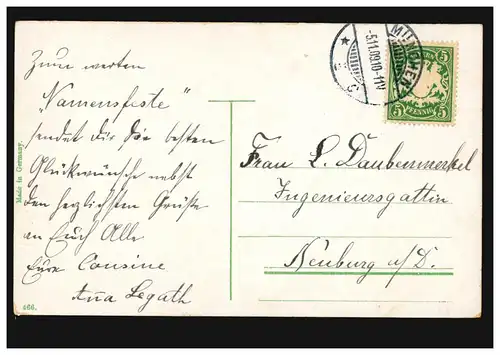 Zum werten
"Namensfeste"
sendet Dir die besten
Glückwünsche nebst
den herzlichsten Grüße
an Euch Alle
Eure Cousine
Anna Legath
Made in Germany.
466.
MÜNCHEN
-5.11.09.10-11V
5
5
PFENNIG
Frau L. Daubenmerkel
Ingenieursgattin
Neuburg a/D.